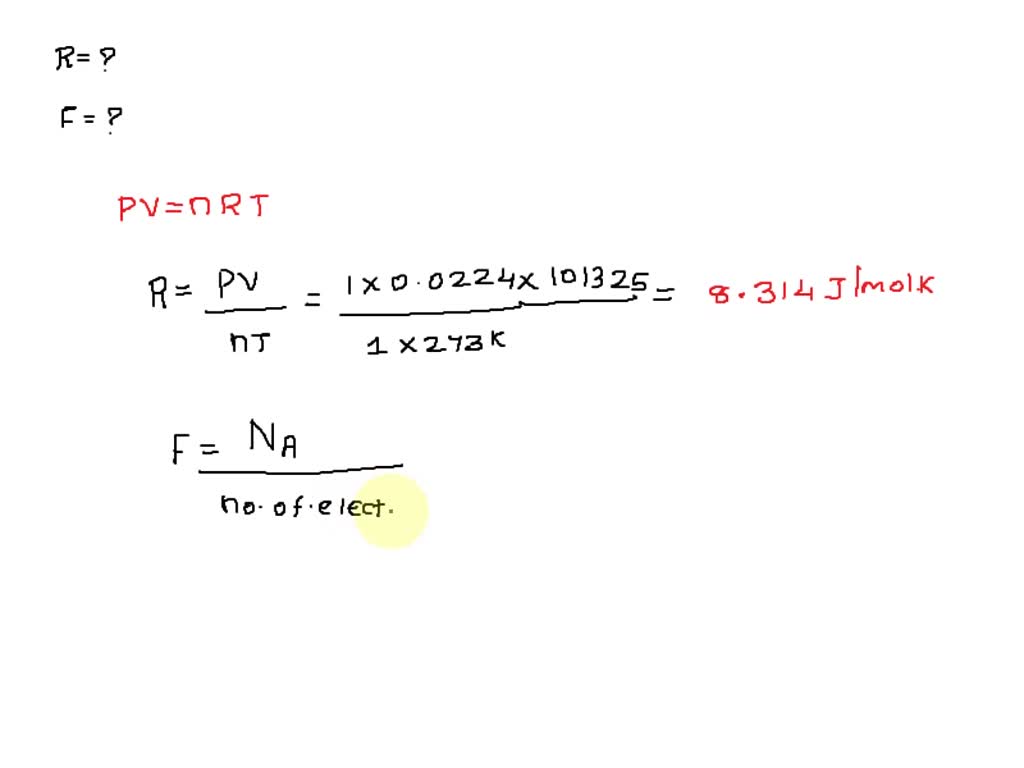 R= ?
F = ?
PV=nRT
R= PV / nT = 1 x 0.0224x 101325 / 1 x 273K = 8.314 J/molK
F = NA / no. of. elect.